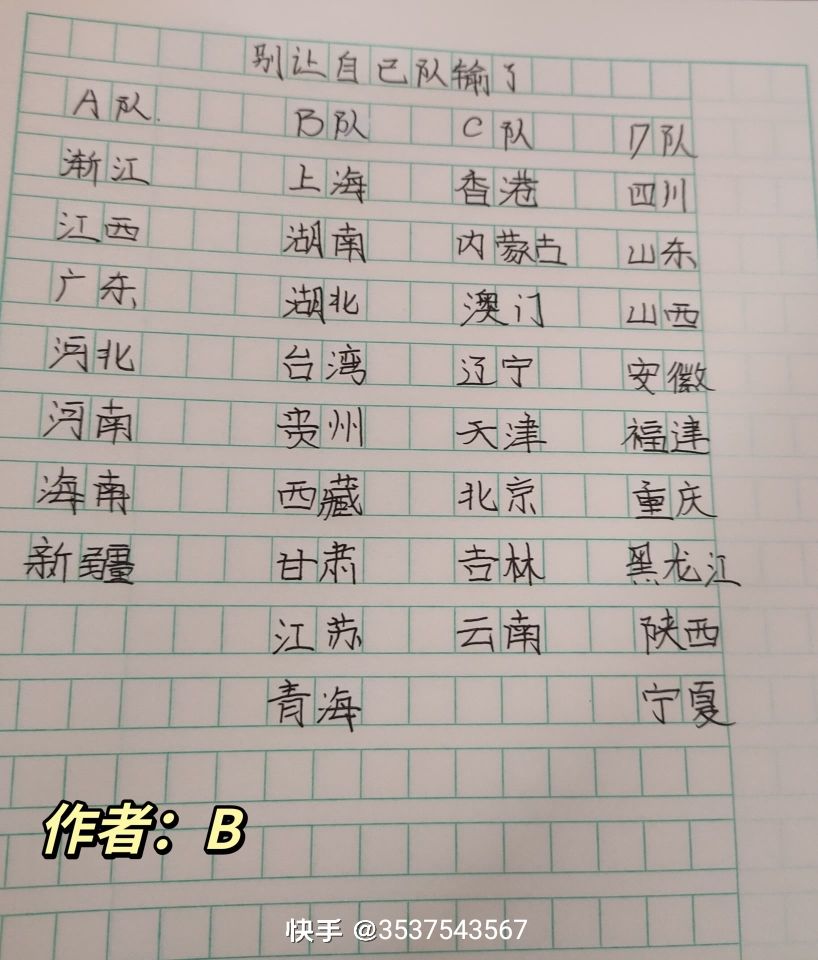 别让自己队输了
A队. B队 C队 D队
浙江 上海 香港 四川
江西 湖南 内蒙古 山东
广东 湖北 澳门 山西
河北 台湾 辽宁 安徽
河南 贵州 天津 福建
海南 西藏 北京 重庆
新疆 甘肃 吉林 黑龙江
江苏 云南 陕西
青海 宁夏
作者：B
快手 @3537543567